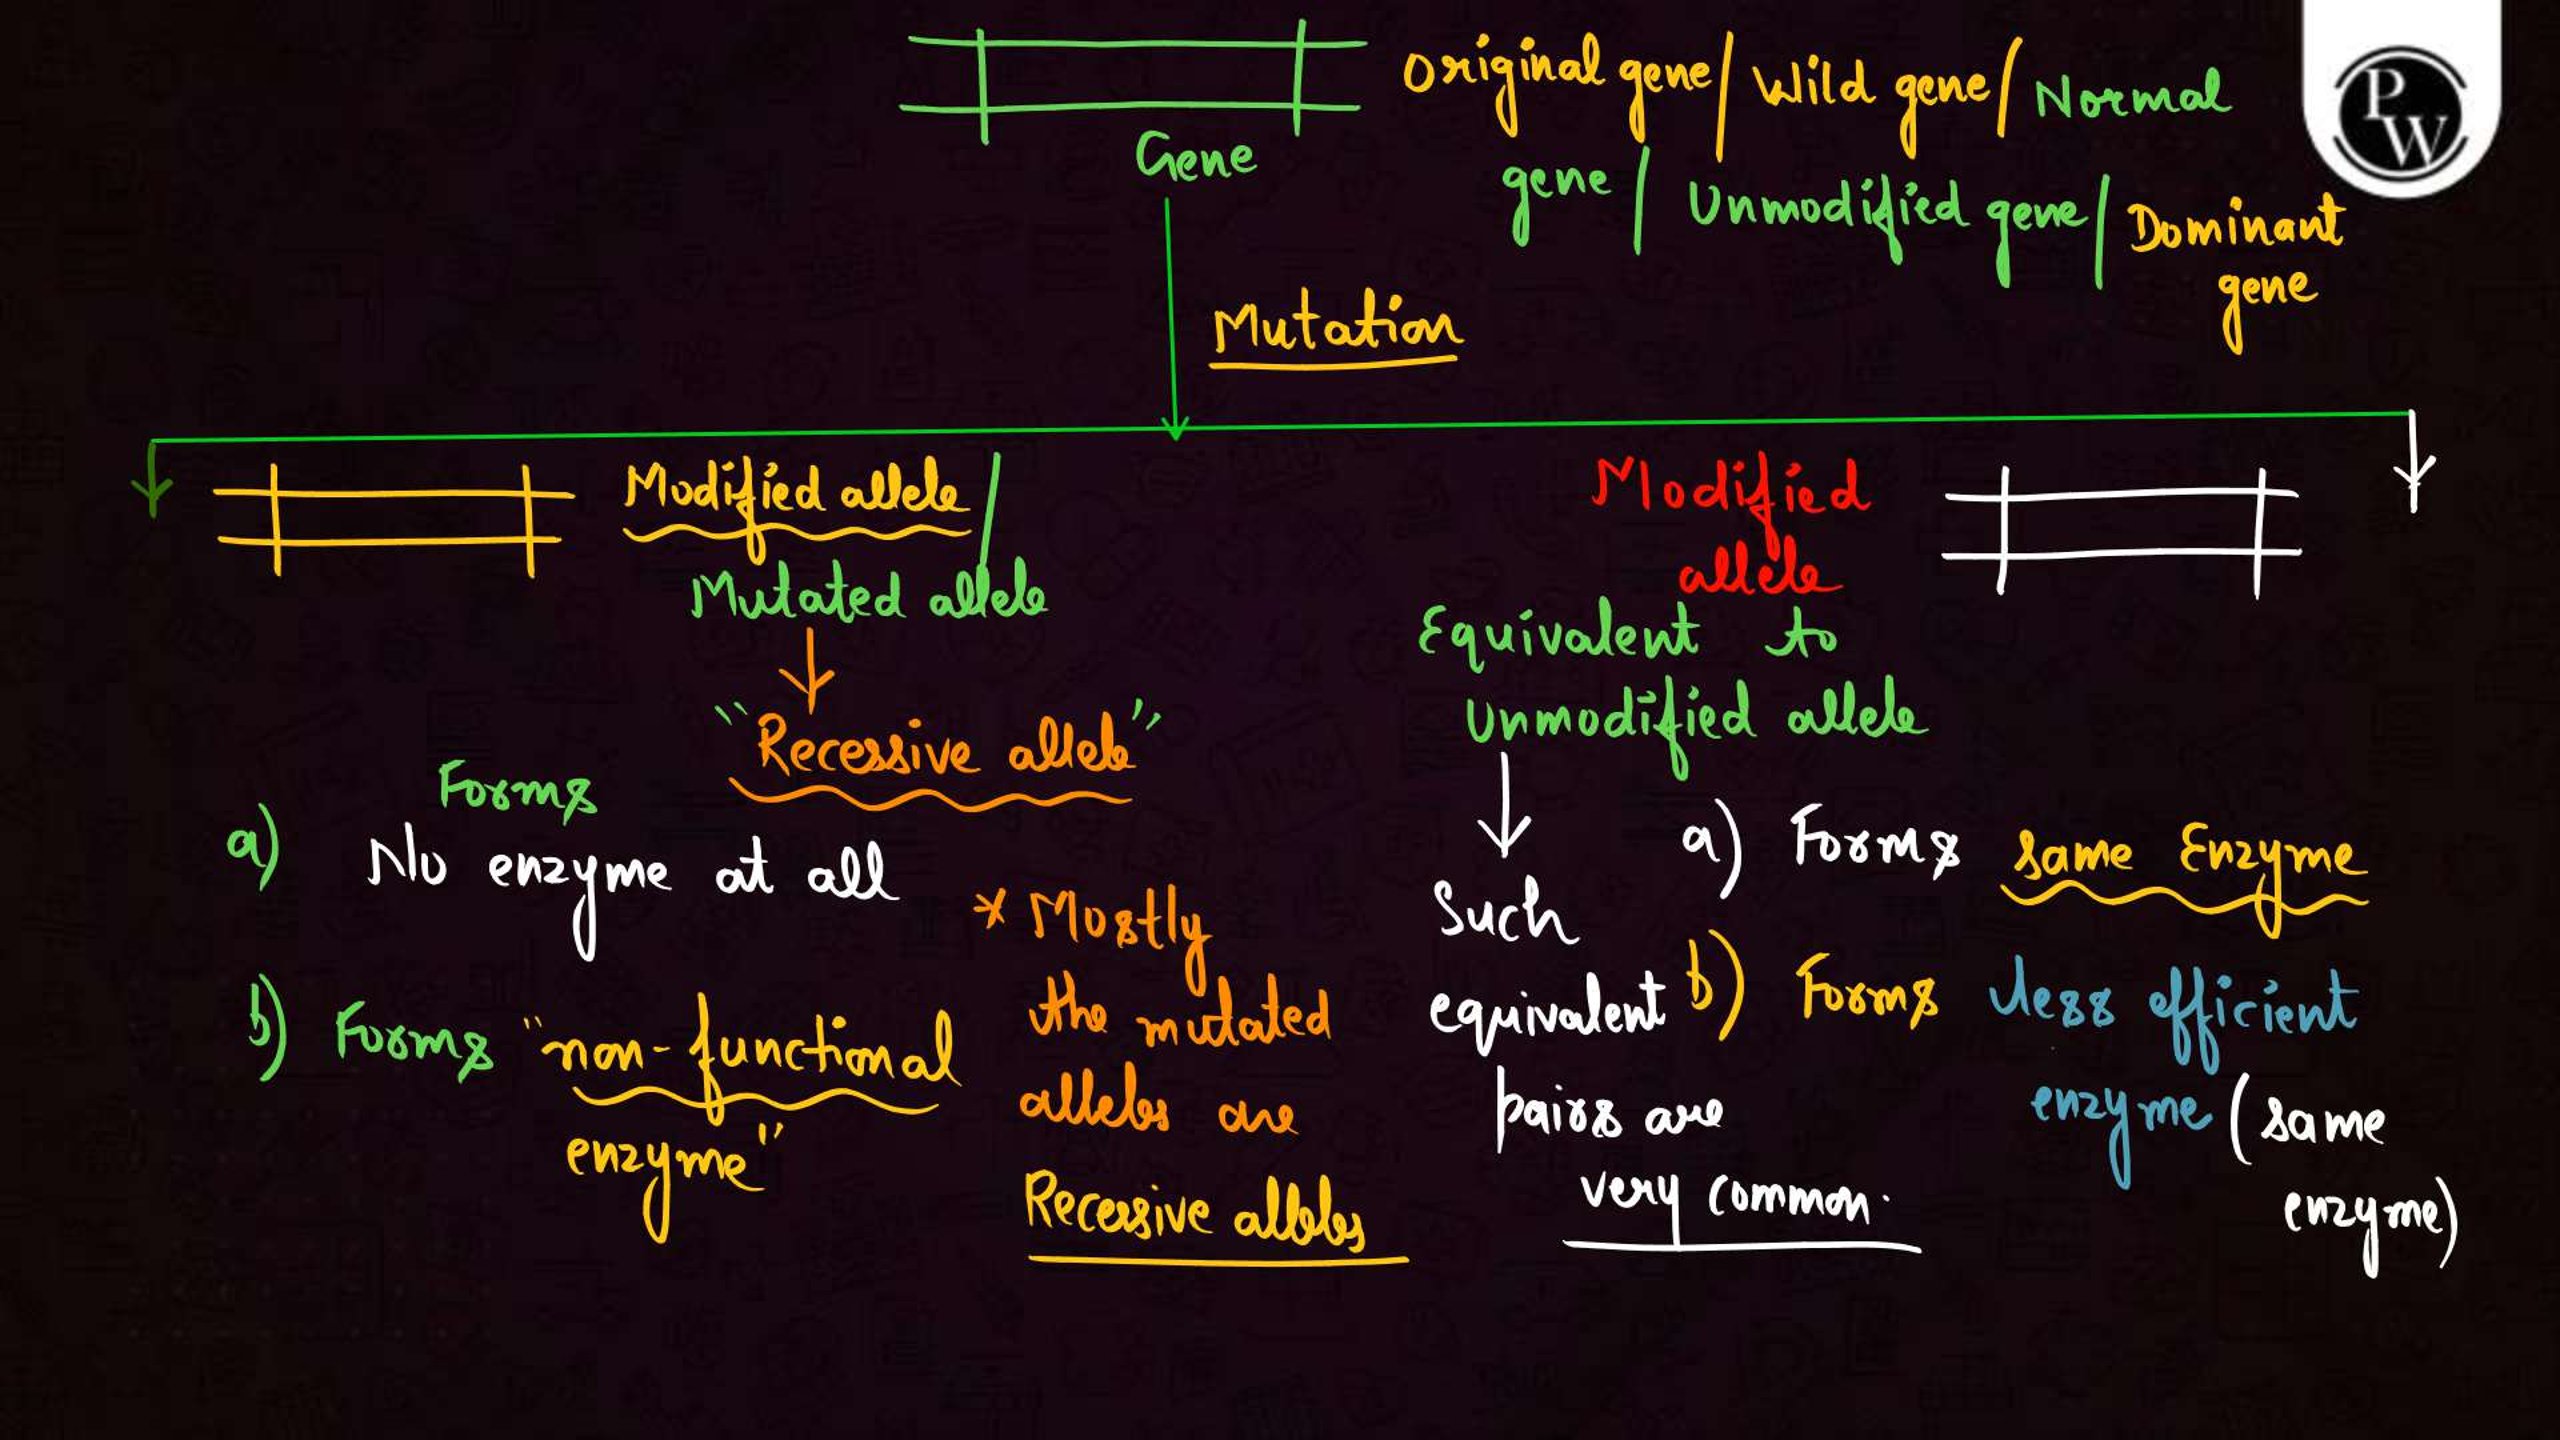 Original gene/ Wild gene/ Normal
gene/ Unmodified gene/ Dominant
gene
PW
Gene
Mutation
Modified allele/
Mutated allele
"Recessive allele"
a) Forms
No enzyme at all
b) Forms "non-functional
enzyme"
* Mostly
the mutated
alleles are
Recessive alleles
Modified
allele
Equivalent to
Unmodified allele
Such
equivalent
pairs are
very common.
a) Forms same Enzyme
b) Forms less efficient
enzyme (same
enzyme)